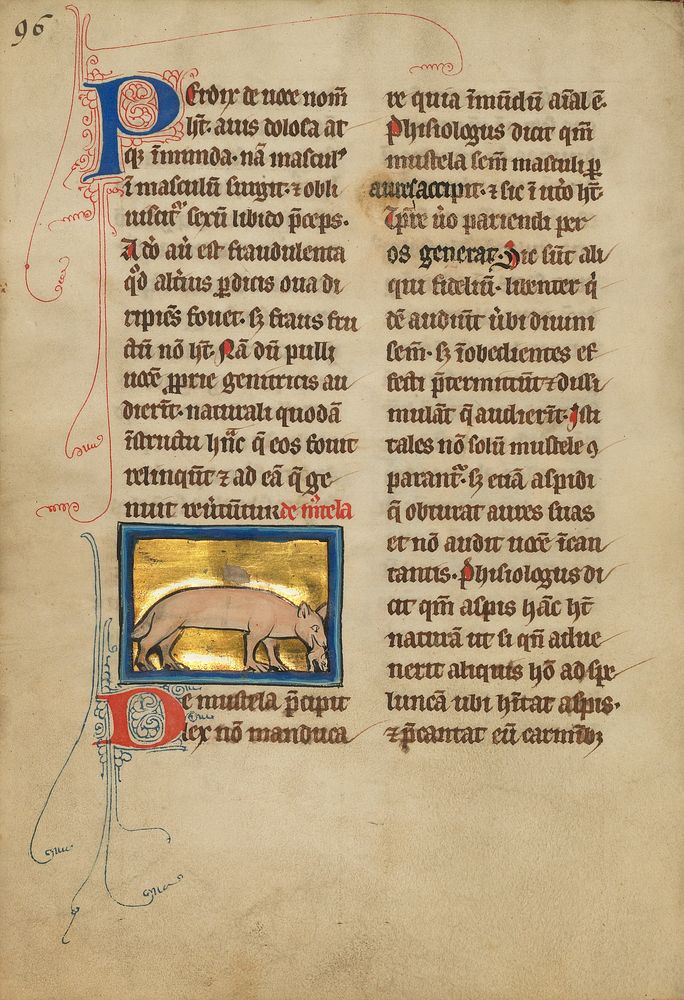 96
Perdix de uoce nom̄
ht̄. auis dolosa at
q3 īmunda. nā mascul9
ī masculū surgit. ⁊ obli
uiscit᷑ sexū libido p̄ceps.
Adō aū est fraudulenta
qd̄ altīus ꝑdicis oua di
ripiēs fouet. sꝫ fraus fru
ctū nō ht̄. Nā dū pulli
uocē ꝓprie genitricis au
dierīt. naturali quodā
īstructu hūc q̄ eos fouit
relinqūt ⁊ ad eā q̄ ge
nuit reūtūtur de m᷑tela
De mustela p̄cipit
lex nō manduca
re quia īmūdū aīal ē.
Phisiologus dicit qm̄
mustela sem̄ masculi ꝑ
aures accipit. ⁊ sic ī utō ht̄.
Tꝑre ūo pariendi per
os generat. Sic sūt ali
qui fideliū. libenter q̄
dē audiūt ūbi diuini
sem̄. sꝫ īobedientes ef
fecti p̄termittūt ⁊ dissi
mulāt q̄ audierīt. Isti
tales nō solū mustele ꝯ
parant᷑. sꝫ etiā aspidi
q̄ obturat aures suas
et nō audit uocē īcan
tantis. Phisiologus di
cit qm̄ aspis hāc ht̄
naturā ut si qn̄ adue
nerit aliquis hō ad spe
luncā ubi hītat aspis.
⁊ p̄cantat eū carmībꝫ